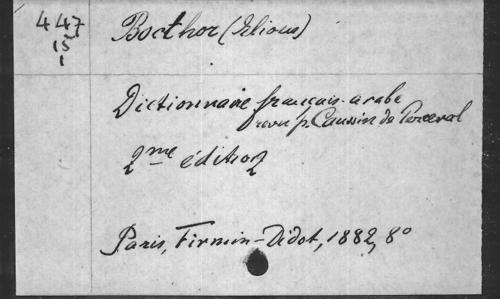 447
15
1
Bocthor (Elious)
Dictionnaire français-arabe
revu p. Caussin de Perceval
2me édition
Paris, Firmin-Didot, 1882, 8°